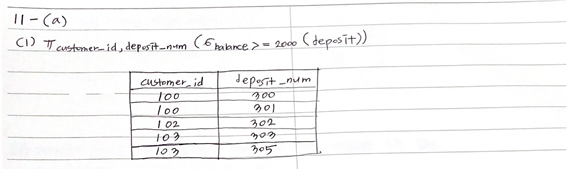 11-(a)
(1) π customer_id, deposit_num (σ balance >= 2000 (deposit))
customer_id deposit_num
100 300
100 301
102 302
103 303
103 305